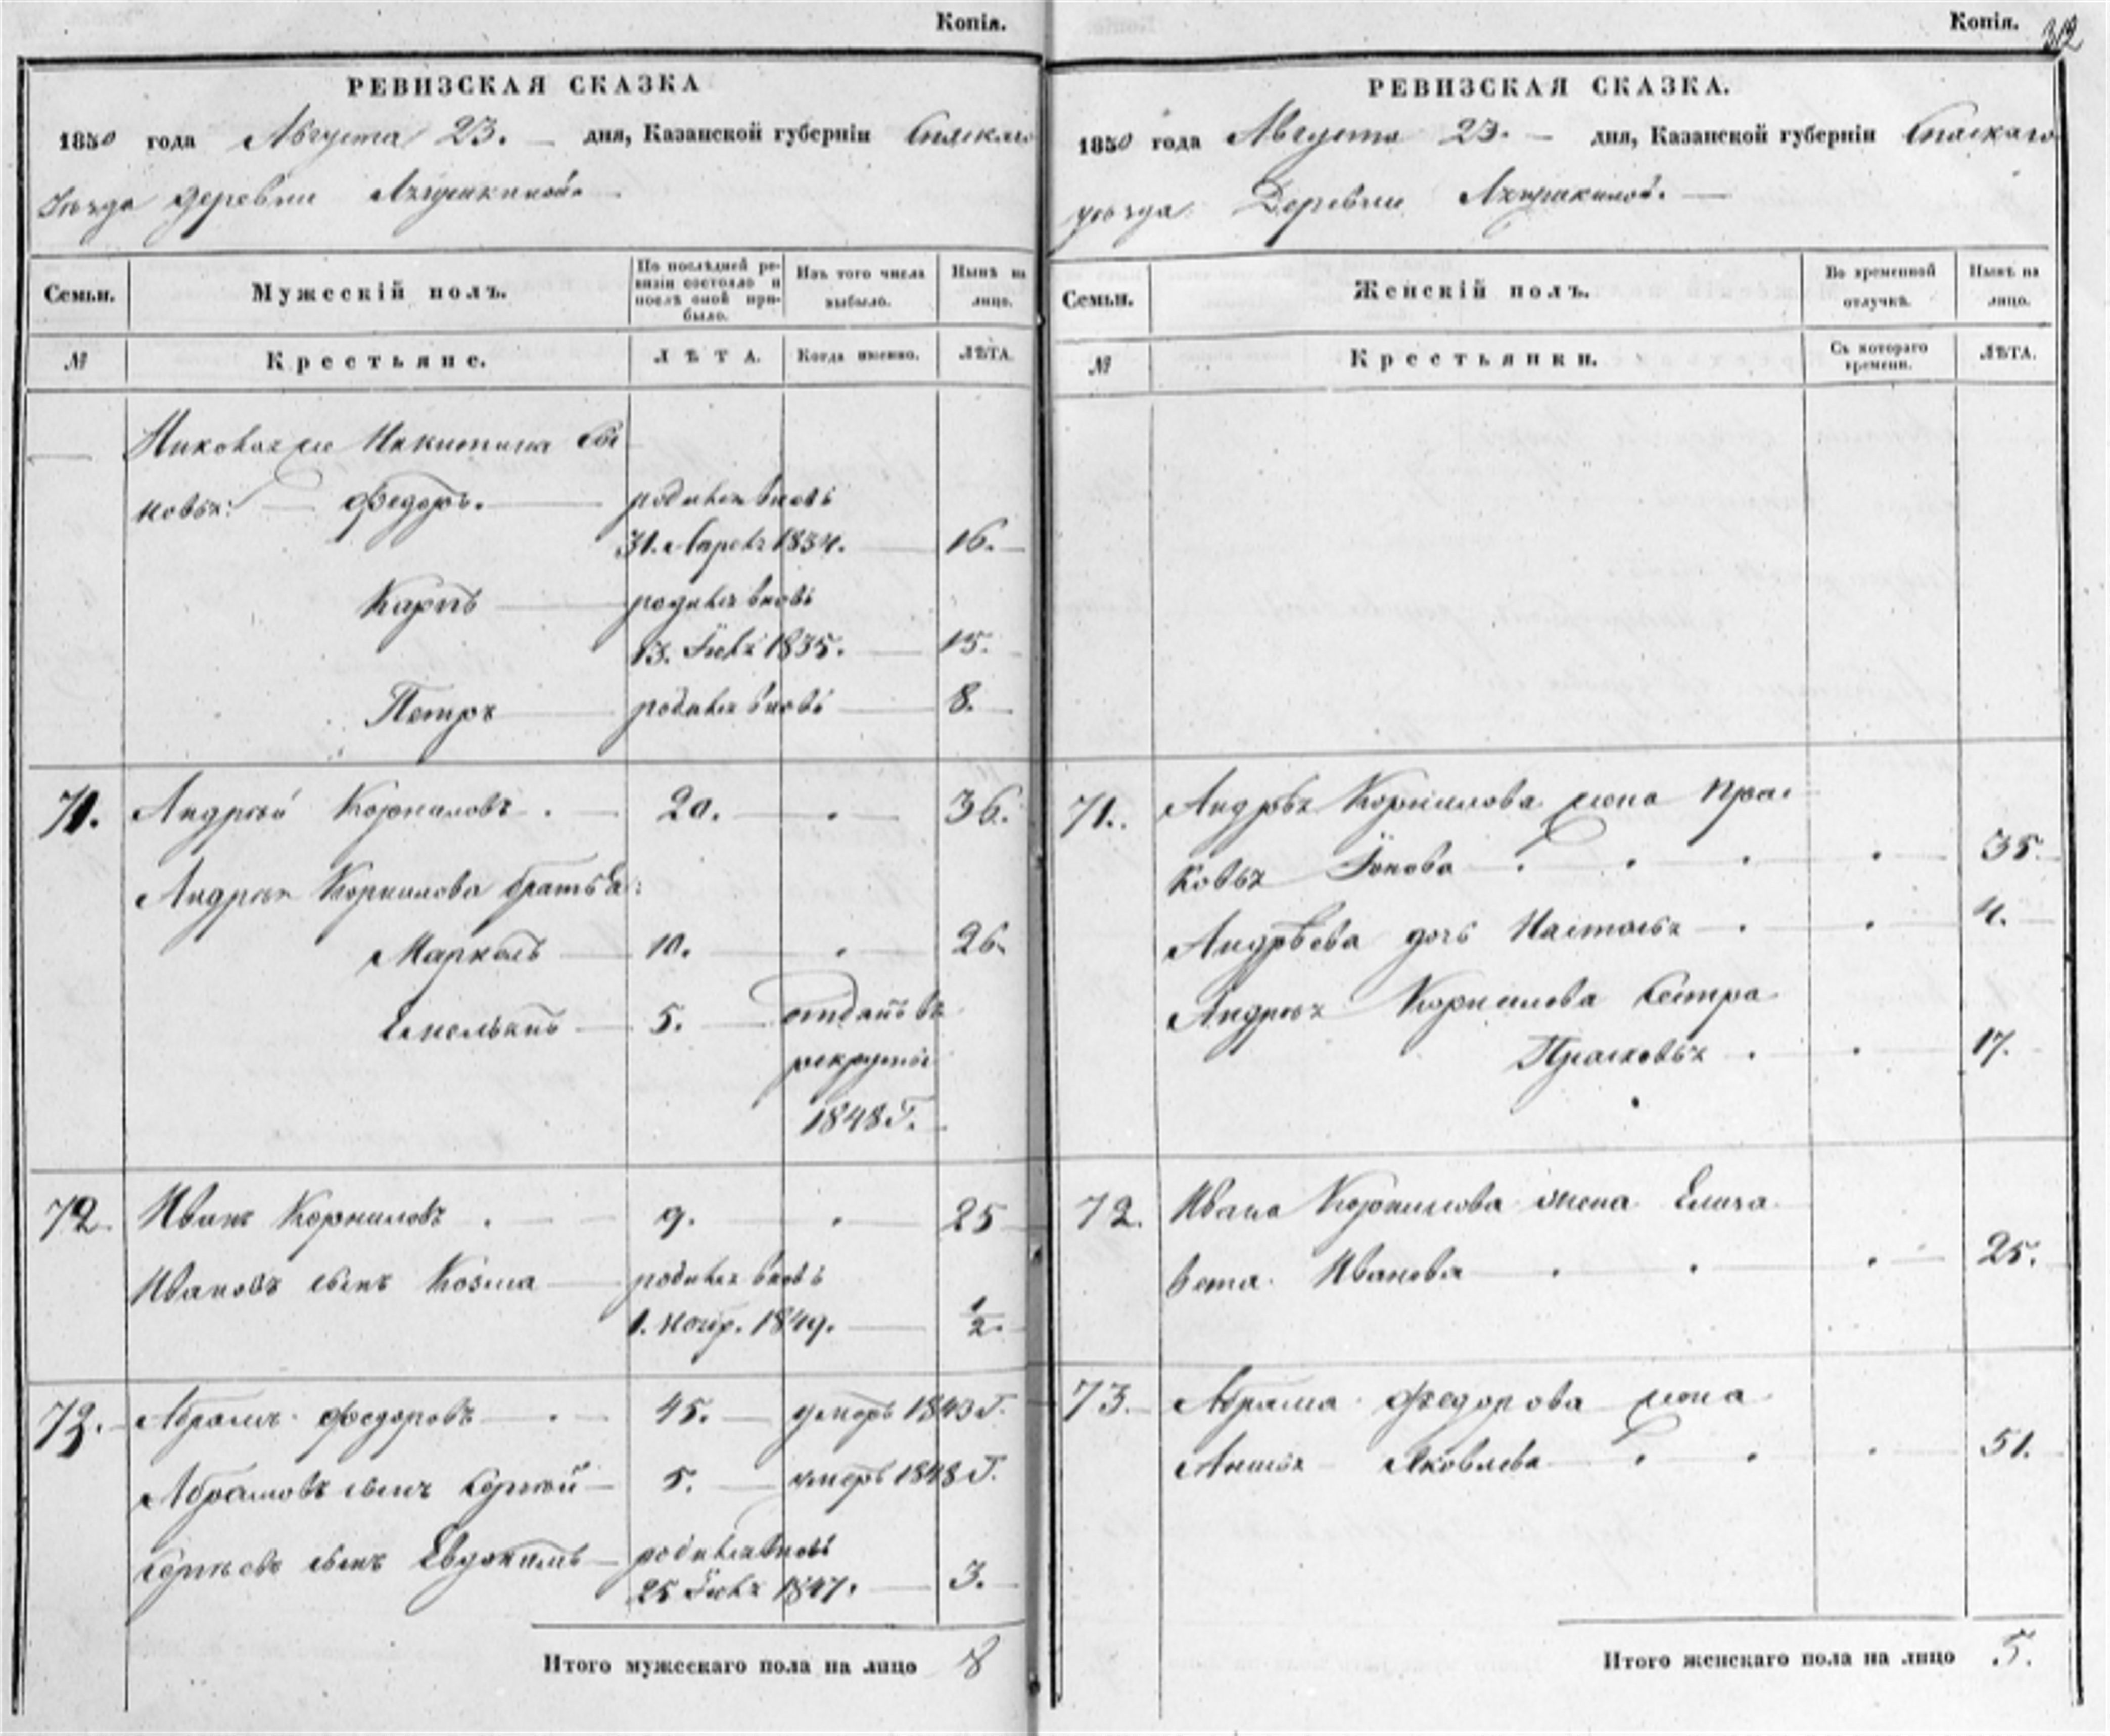 Копія.
РЕВИЗСКАЯ СКАЗКА
1850 года Августа 23. дня, Казанской губерніи Спаскаго
уѣзда деревни
Семьи.
Мужескій полъ.
По послѣдней ре-
визіи состояло и
послѣ оной при-
было.
Изъ того числа
выбыло.
Нынѣ на
лицо.
№
Крестьяне.
ЛѢТА.
Когда именно.
ЛѢТА.
Никитина сы
новья: Федоръ. родился вновь
31. Апреля 1834. 16.
Карпъ родился вновь
13. Іюля 1835. 15.
Петръ родился вновь 8.
71. Андрей Корниловъ. 20. 36.
Андрея Корнилова братья:
Маркелъ 10. 26.
Емельянъ 5. отданъ въ
рекруты
1848 Г.
72. Иванъ Корниловъ. 9. 25
Ивановъ сынъ Козма родился вновь
1. Ноябр. 1849. 1/2.
73. Абрамъ Федоровъ 45. умеръ 1843 Г.
Абрамовъ сынъ Сергѣй 5. умеръ 1848 Г.
Сергѣевъ сынъ Евдокимъ родился вновь
25 Іюля 1847. 3.
Итого мужескаго пола на лицо 8
Копія.
312
РЕВИЗСКАЯ СКАЗКА.
1850 года Августа 23. дня, Казанской губерніи Спаскаго
уѣзда Деревни
Семьи.
Женскій полъ.
Во временной
отлучкѣ.
Нынѣ на
лицо.
№
Крестьянки.
Съ котораго
времени.
ЛѢТА.
71. Андрея Корнилова жена Прас
ковья Іонова 35.
Андрѣева дочь Настасья 4.
Андрея Корнилова сестра
Прасковья 17.
72. Ивана Корнилова жена Елиза
вета Иванова 25.
73. Абрама Федорова жена
Анисья Яковлева 51.
Итого женскаго пола на лицо 5.